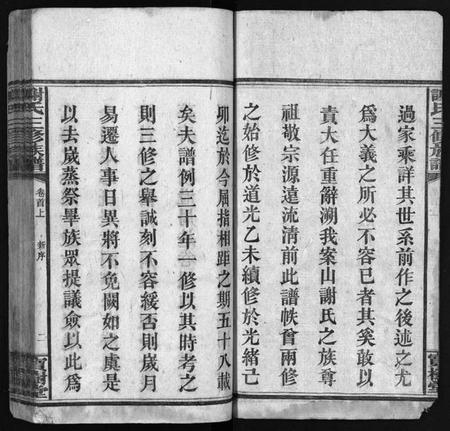 過家乘詳其世系前作之後述之尤
爲大義之所必不容已者其奚敢以
責大任重辭溯我案山謝氏之族尊
祖敬宗源遠流清前此譜帙曾兩修
之始修於道光乙未續修於光緒己
卯迄於今屈指相距之期五十八載
矣夫譜例三十年一修以其時考之
則三修之舉誠刻不容緩否則歲月
易遷人事日異將不免闕如之虞是
以去歲蒸祭畢族眾提議僉以此爲
謝氏三修族譜
卷首上
新序
二
寶樹堂